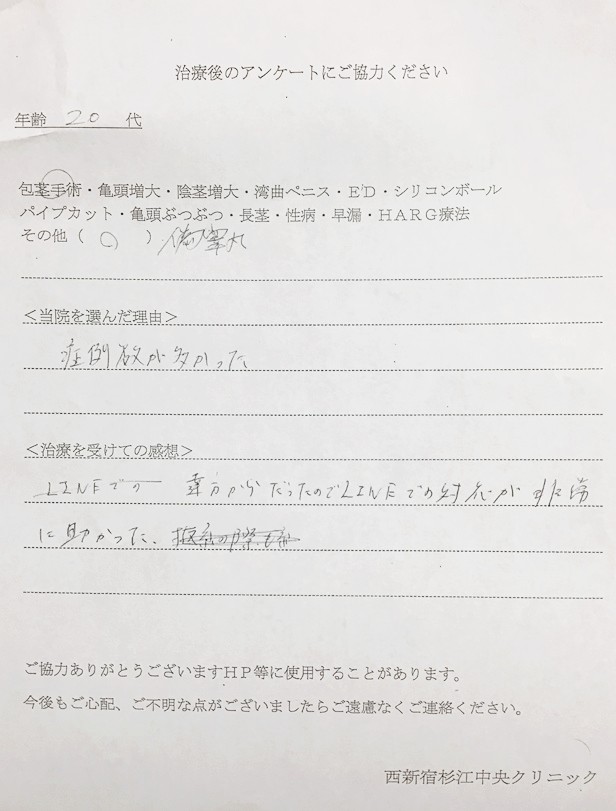 治療後のアンケートにご協力ください
年齢 20 代
包茎手術・亀頭増大・陰茎増大・湾曲ペニス・ED・シリコンボール
パイプカット・亀頭ぶつぶつ・長茎・性病・早漏・HARG療法
その他（ ）睾丸
＜当院を選んだ理由＞
症例数が多かった
＜治療を受けての感想＞
LINEでの 遠方からだったのでLINEでの対応が非常
に助かった、
ご協力ありがとうございますHP等に使用することがあります。
今後もご心配、ご不明な点がございましたらご遠慮なくご連絡ください。
西新宿杉江中央クリニック